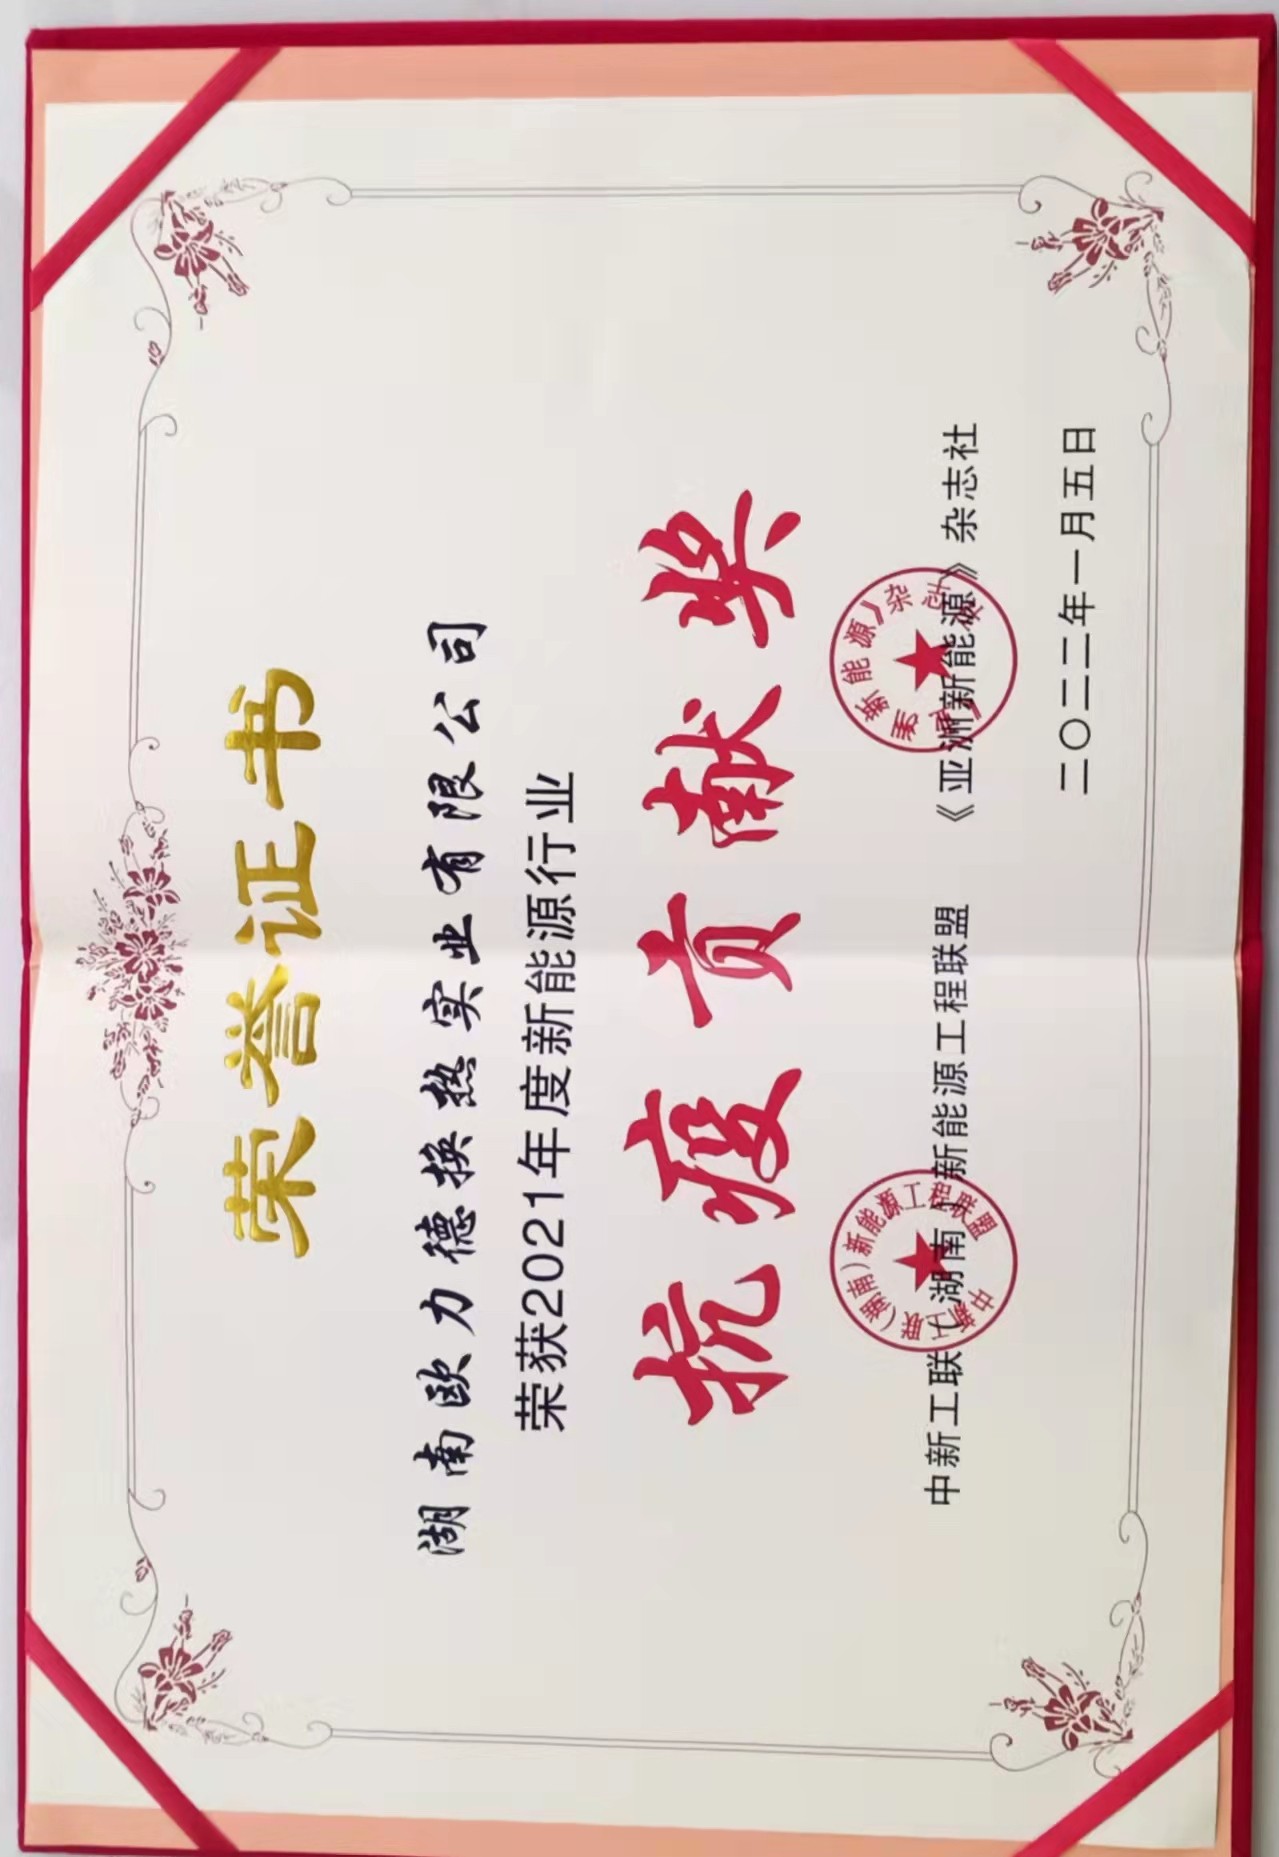 荣誉证书
湖南欧力德换热实业有限公司
荣获2021年度新能源行业
抗疫贡献奖
中新工联（湖南）新能源工程联盟 《亚洲新能源》杂志社
二〇二二年一月五日
中新工联（湖南）新能源工程联盟
《亚洲新能源》杂志社